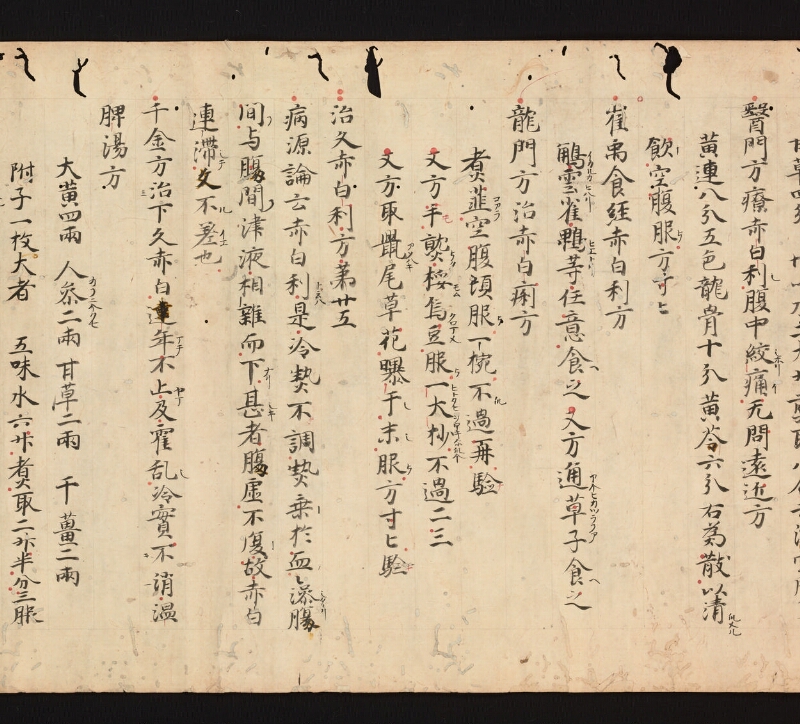 醫門方療赤白利腹中絞痛无問遠近方
黄連八分五色龍骨十分黄芩六分右為散以清
飲空腹服方寸匕
崔禹食経赤白利方
鸊雲雀鴨等任意食之 又方通草子食之
龍門方治赤白痢方
煮韮空腹頓服一椀不過再驗
又方平 烏豆服一大抄不過二三
又方取鼠尾草花曝干末服方寸匕驗
治久赤白利方第廿五
病源論云赤白利是冷熱不調熱乗於血〻滲腸
间与腸間津液相雜而下甚者腸虚不復故赤白
連滯久不差也
千金方治下久赤白連年不止及霍乱冷實不消温
脾湯方
大黄四兩 人参二兩 甘草二兩 干薑二兩
附子一枚大者 五味水六升煮取二升半分三服